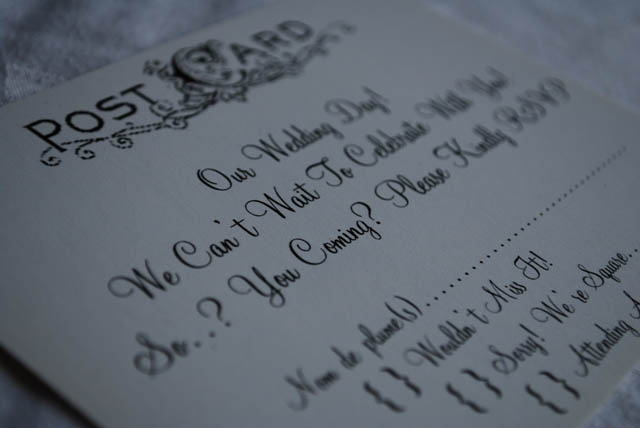 POST CARD
Our Wedding Day!
We Can't Wait To Celebrate With You!
So...? You Coming? Please Kindly RSVP
Nom de plume(s)..............................
{ } Wouldn't Miss It!
{ } Sorry! We're Square...
{ } Attending A